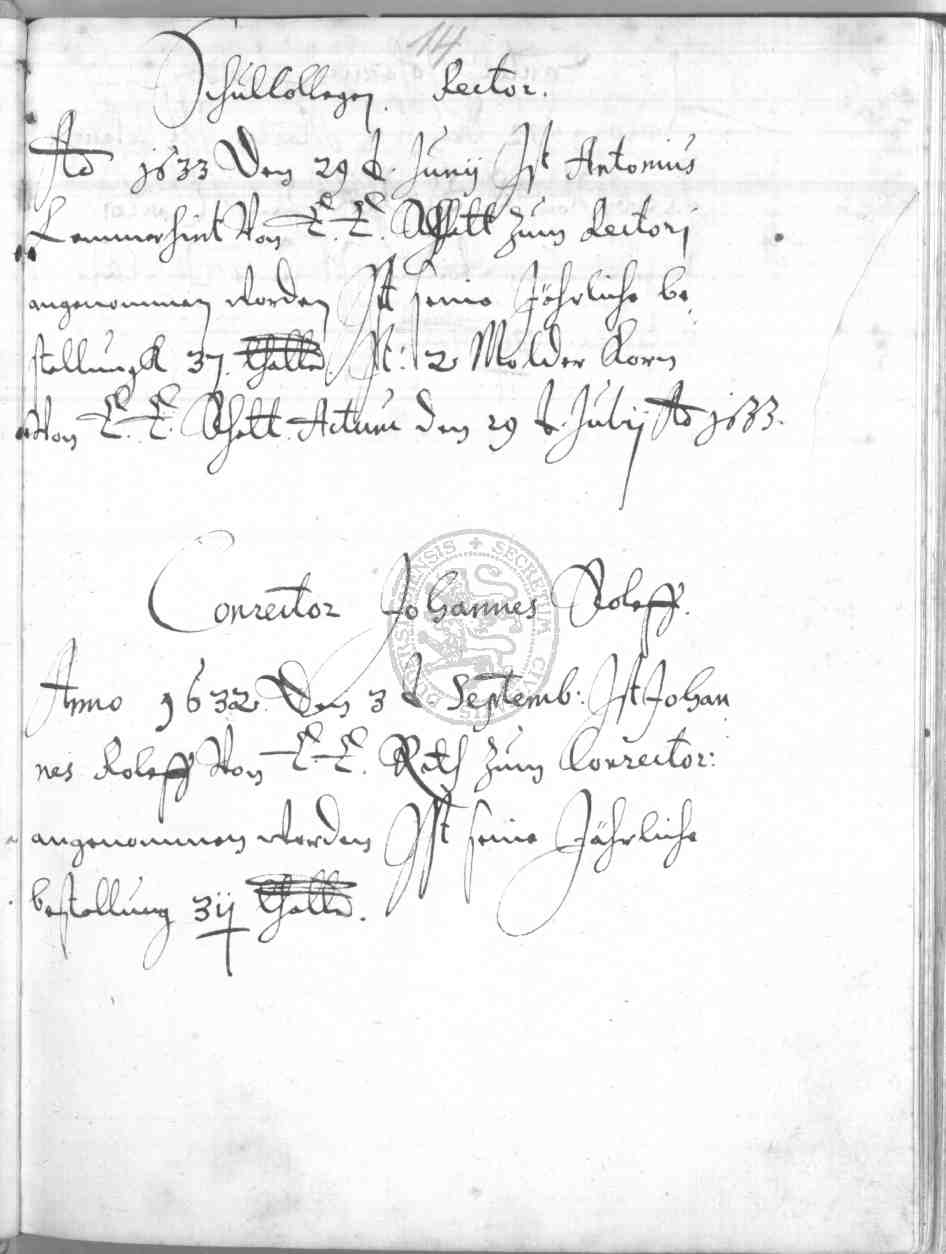 14
Schullollegen. Rector.
Ao 1633 Den 29 t. Junij Ist Antonius
Lemmerhirt Von E. E. Rhatt zum Rectorj
angenommen worden Ist seine Jährliche be
stellungk 37. thaller. Nt: 12 Molder Korn
Von E. E. Rhatt Actum den 29 t. Julij Ao 1633.
Conrector Johannes Roleff.
Anno 1632. Den 3 t Septemb: Ist Johan
nes Roleff Von E. E. Rath zum Conrector:
angenommen worden Ist seine Jährliche
bestellung thaller.
SECRETUM CIVI